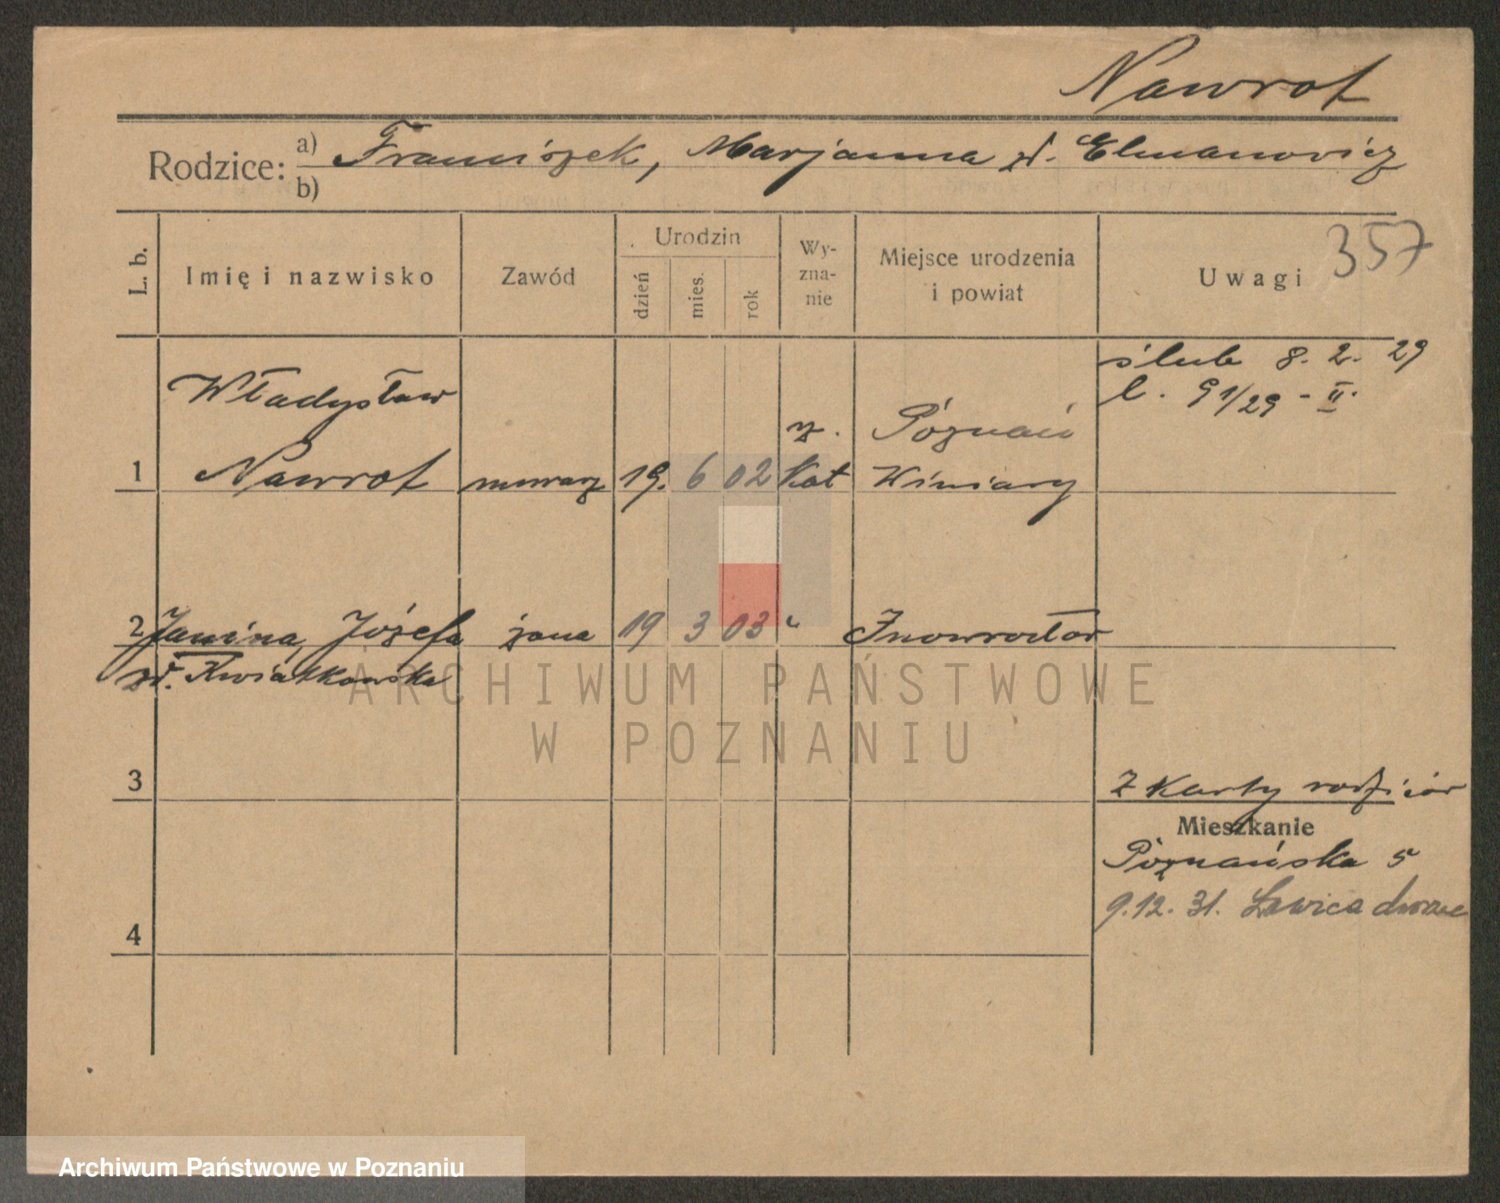 Nawrot
Rodzice: a) Franciszek, Marjanna zd. Elmanowicz
b)
357
L. b.
Imię i nazwisko
Zawód
Urodzin
dzień
mies.
rok
Wy-
zna-
nie
Miejsce urodzenia
i powiat
Uwagi
ślub 8. 2. 29
l. 91/29 - II.
Władysław
rz. Poznań
1 Nawrot murarz 19. 6 02 Kat Winiary
2 Janina, Józefa żona 19 3 03 " Inowrocław
zd. Kwiatkowska
ARCHIWUM PAŃSTWOWE
W POZNANIU
3
Z karty rodziców
Mieszkanie
Poznańska 5
9.12. 31. Ławica
4
Archiwum Państwowe w Poznaniu